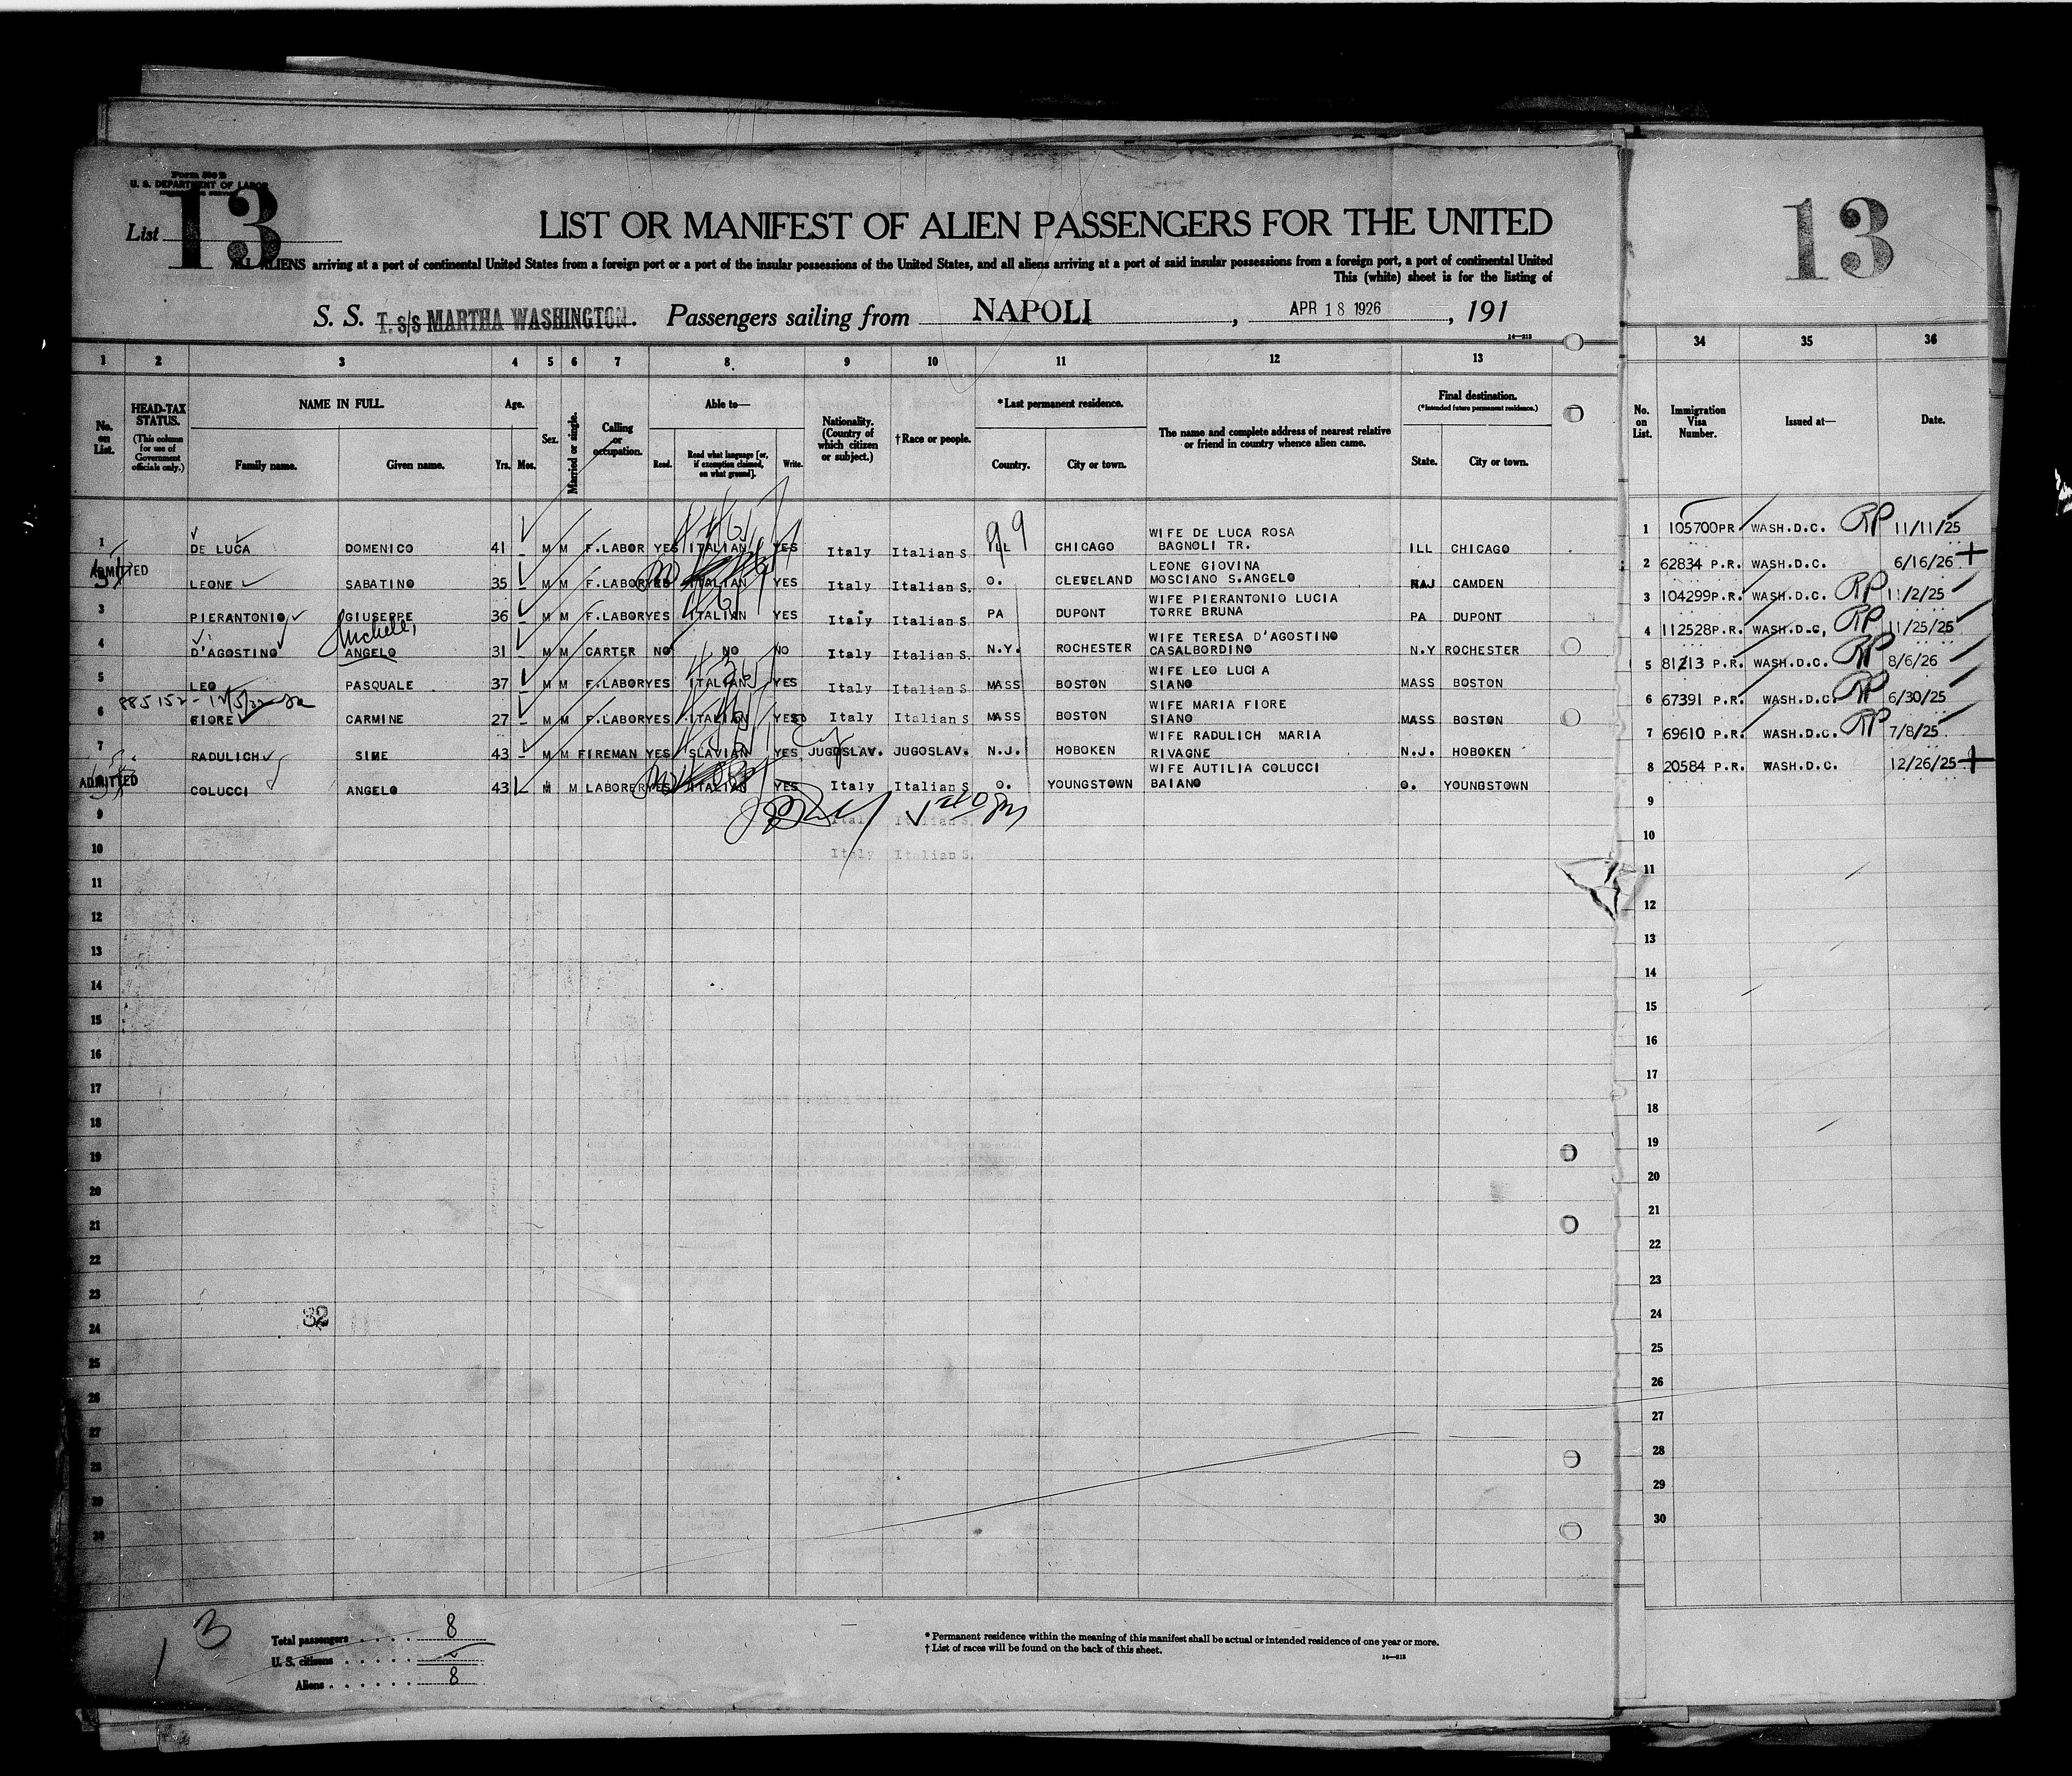 Form 500 B
U. S. DEPARTMENT OF LABOR
List 13
LIST OR MANIFEST OF ALIEN PASSENGERS FOR THE UNITED
ALL ALIENS arriving at a port of continental United States from a foreign port or a port of the insular possessions of the United States, and all aliens arriving at a port of said insular possessions from a foreign port, a port of continental United
This (white) sheet is for the listing of
S. S. T. s/s MARTHA WASHINGTON. Passengers sailing from NAPOLI, APR 18 1926, 191
14—213
13
1 2 3 4 5 6 7 8 9 10 11 12 13 34 35 36
No. on List. HEAD-TAX STATUS. (This column for use of Government officials only.) NAME IN FULL. Family name. Given name. Age. Yrs. Mos. Sex. Married or single. Calling or occupation. Able to— Read. Read what language [or, if exemption claimed, on what ground]. Write. Nationality. (Country of which citizen or subject.) †Race or people. *Last permanent residence. Country. City or town. The name and complete address of nearest relative or friend in country whence alien came. Final destination. (*Intended future permanent residence.) State. City or town. No. on List. Immigration Visa Number. Issued at— Date.
1 DE LUCA DOMENICO 41 M M F.LABOR YES ITALIAN YES Italy Italian S. ILL 99 CHICAGO WIFE DE LUCA ROSA BAGNOLI TR. ILL CHICAGO 1 105700PR WASH.D.C. RP 11/11/25
ADMITTED LEONE SABATINO 35 M M F.LABOR YES ITALIAN YES Italy Italian S. O. CLEVELAND LEONE GIOVINA MOSCIANO S.ANGELO CAMDEN 2 62834 P.R. WASH.D.C. 6/16/26
3 PIERANTONIO GIUSEPPE 36 M M F.LABOR YES ITALIAN YES Italy Italian S. PA DUPONT WIFE PIERANTONIO LUCIA TORRE BRUNA PA DUPONT 3 104299P.R. WASH.D.C. RP 11/2/25
4 D'AGOSTINO ANGELO 31 M M CARTER NO NO NO Italy Italian S. N.Y. ROCHESTER WIFE TERESA D'AGOSTINO CASALBORDINO N.Y ROCHESTER 4 112528P.R. WASH.D.C, RP 11/25/25
5 LEO PASQUALE 37 M M F.LABOR YES ITALIAN YES Italy Italian S. MASS BOSTON WIFE LEO LUCIA SIANO MASS BOSTON 5 81213 P.R. WASH.D.C. RP 8/6/26
6 FIORE CARMINE 27 M M F.LABOR YES ITALIAN YES Italy Italian S MASS BOSTON WIFE MARIA FIORE SIANO MASS BOSTON 6 67391 P.R. WASH.D.C. RP 6/30/25
7 RADULICH SIME 43 M M FIREMAN YES SLAVIAN YES JUGOSLAV. JUGOSLAV. N.J. HOBOKEN WIFE RADULICH MARIA RIVAGNE N.J. HOBOKEN 7 69610 P.R. WASH.D.C. RP 7/8/25
ADMITTED COLUCCI ANGELO 43 M M LABORER YES ITALIAN YES Italy Italian S O. YOUNGSTOWN WIFE AUTILIA COLUCCI BAIANO O. YOUNGSTOWN 8 20584 P.R. WASH.D.C. 12/26/25
9 Italy Italian S. 9
10 Italy Italian S. 10
11 11
12 12
13 13
14 14
15 15
16 16
17 17
18 18
19 19
20 20
21 21
22 22
23 23
24 24
32
25 25
26 26
27 27
28 28
29 29
30 30
13
Total passengers . . . . 8
U. S. citizens . . . . .
Aliens . . . . . . 8
* Permanent residence within the meaning of this manifest shall be actual or intended residence of one year or more.
† List of races will be found on the back of this sheet.
14—213